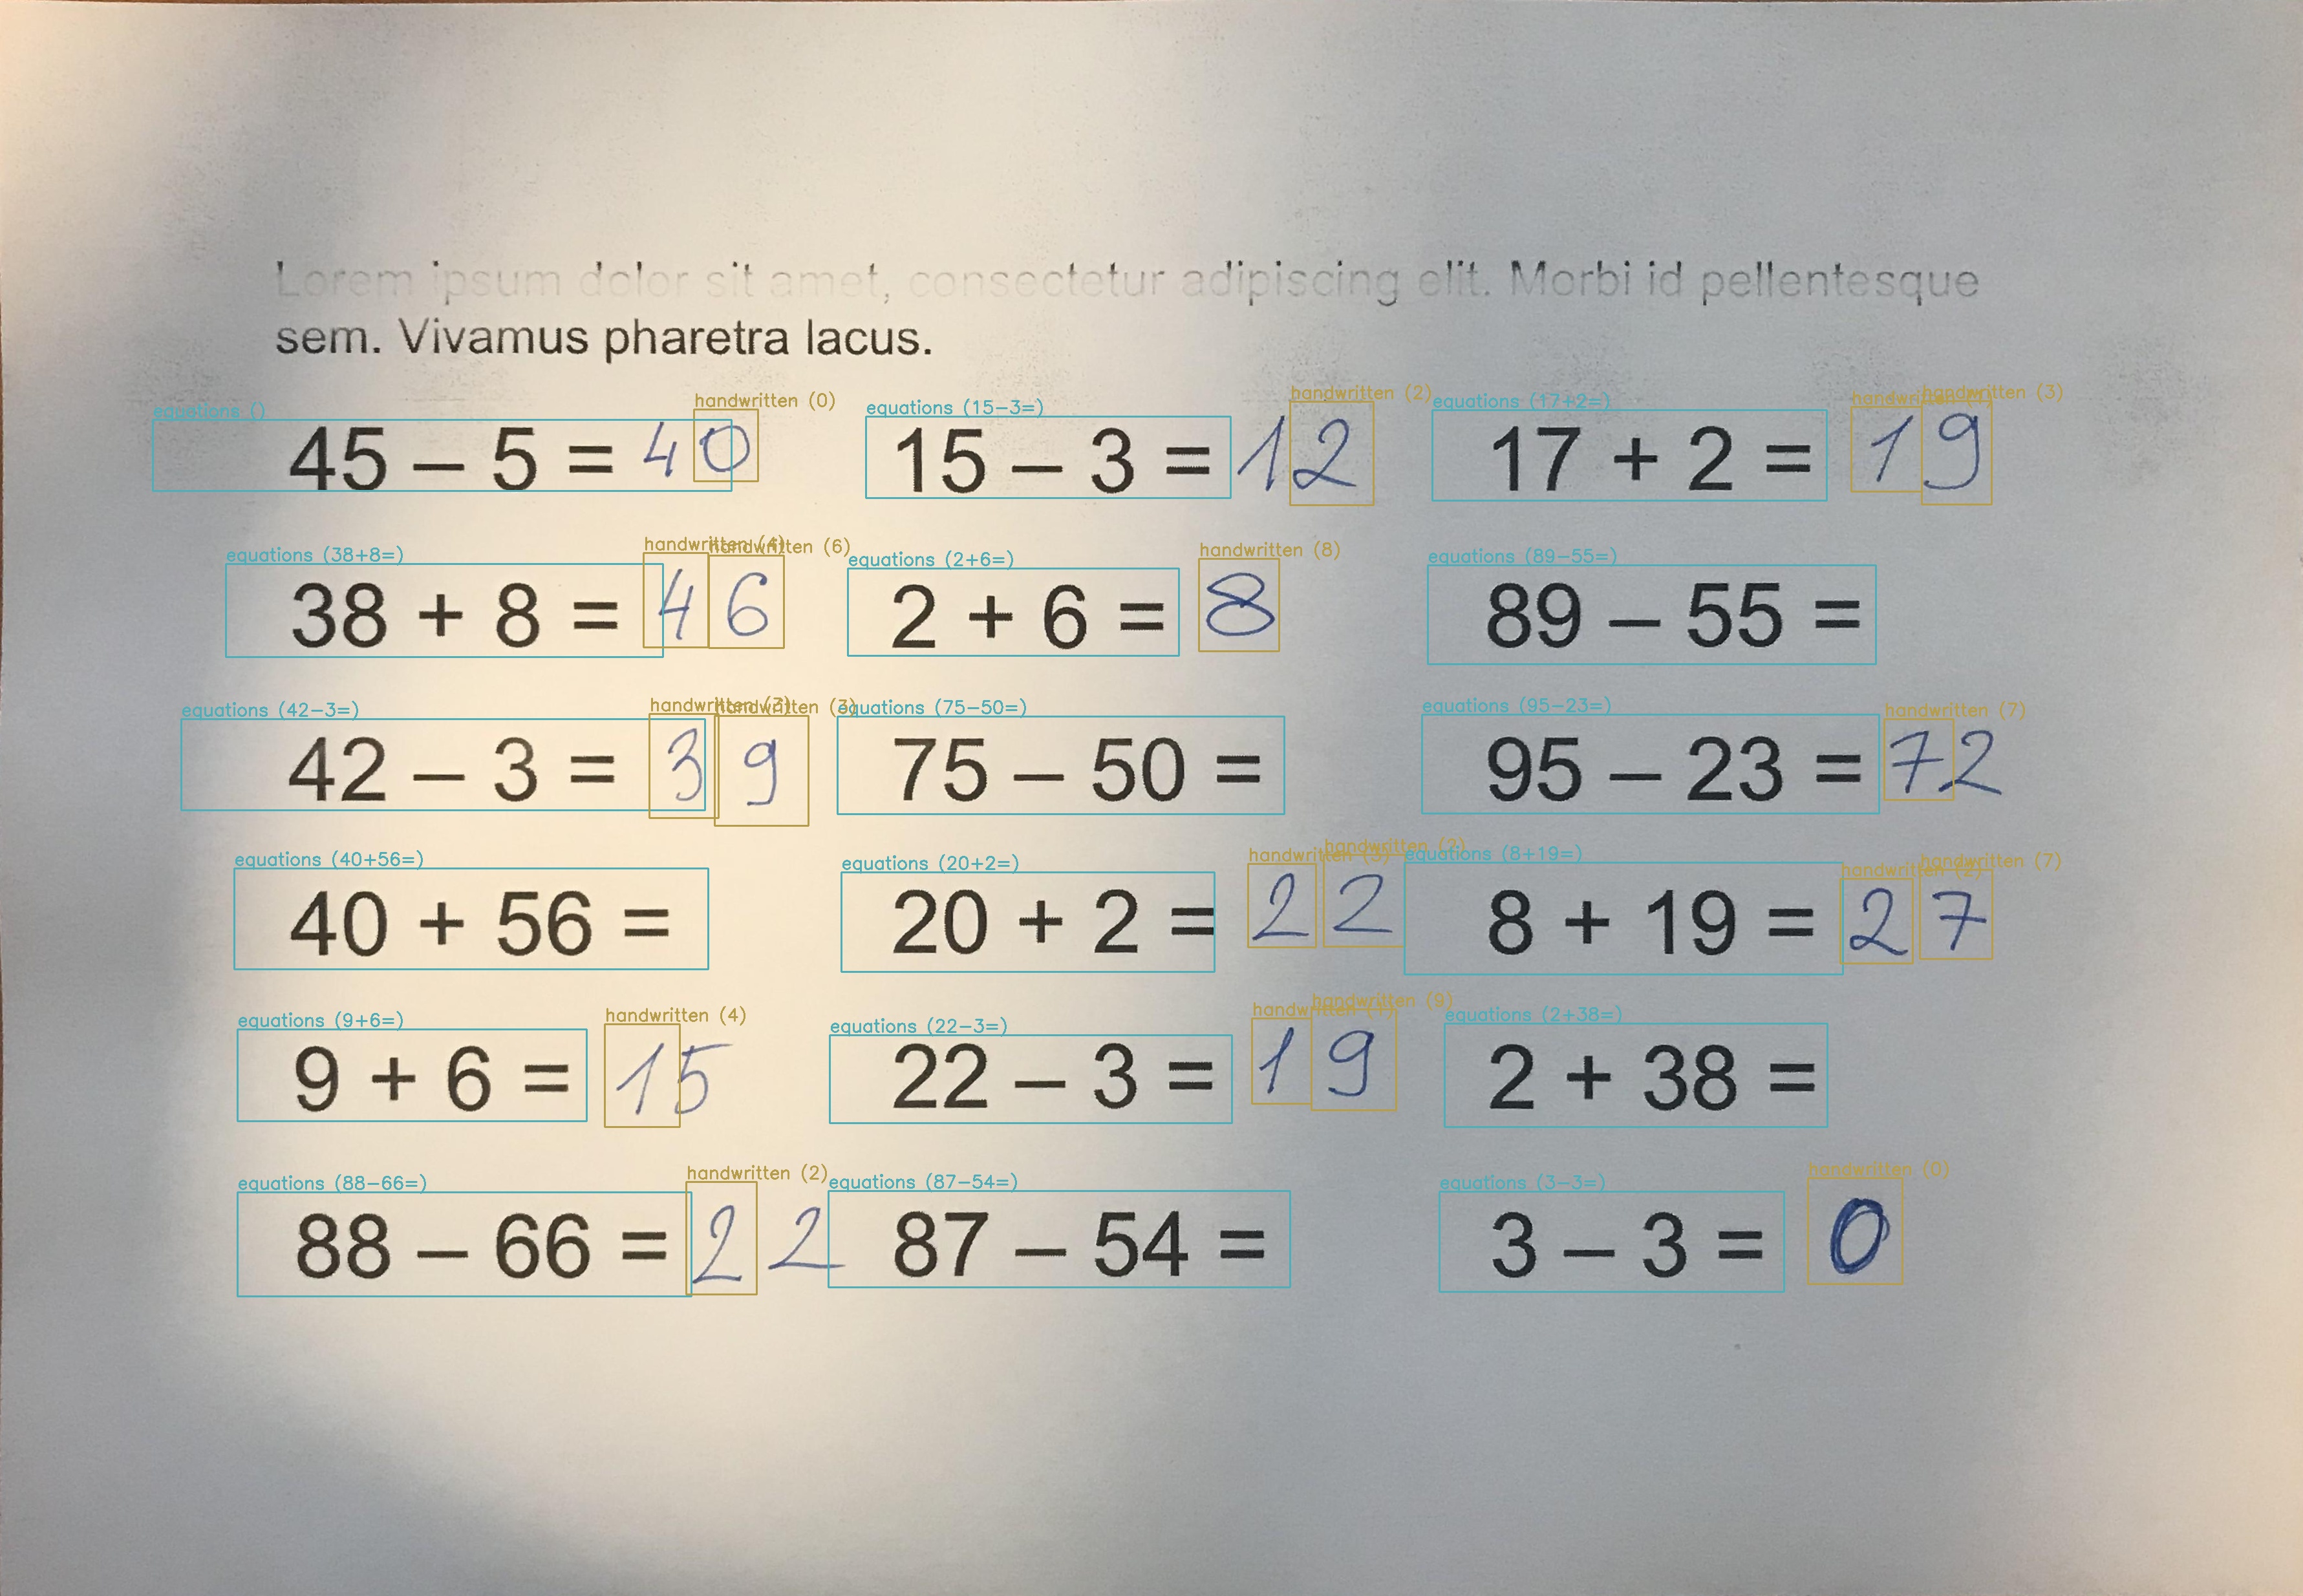 Lorem ipsum dolor sit amet, consectetur adipiscing elit. Morbi id pellentesque
sem. Vivamus pharetra lacus.
equations () handwritten (0) equations (15-3=) handwritten (2) equations (17+2=) handwritten (3)
45 – 5 = 40 15 – 3 = 12 17 + 2 = 19
equations (38+8=) handwritten (4) handwritten (6) equations (2+6=) handwritten (8) equations (89-55=)
38 + 8 = 46 2 + 6 = 8 89 – 55 =
equations (42-3=) handwritten (3) handwritten (3) equations (75-50=) equations (95-23=) handwritten (7)
42 – 3 = 39 75 – 50 = 95 – 23 = 72
equations (40+56=) equations (20+2=) handwritten (3) handwritten (2) equations (8+19=) handwritten (2) handwritten (7)
40 + 56 = 20 + 2 = 22 8 + 19 = 27
equations (9+6=) handwritten (4) equations (22-3=) handwritten (1) handwritten (9) equations (2+38=)
9 + 6 = 15 22 – 3 = 19 2 + 38 =
equations (88-66=) handwritten (2) equations (87-54=) equations (3-3=) handwritten (0)
88 – 66 = 22 87 – 54 = 3 – 3 = 0